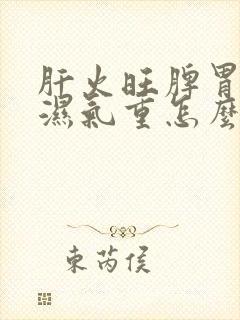 肝火旺脾胃
濕氣重怎麼
東芮侯